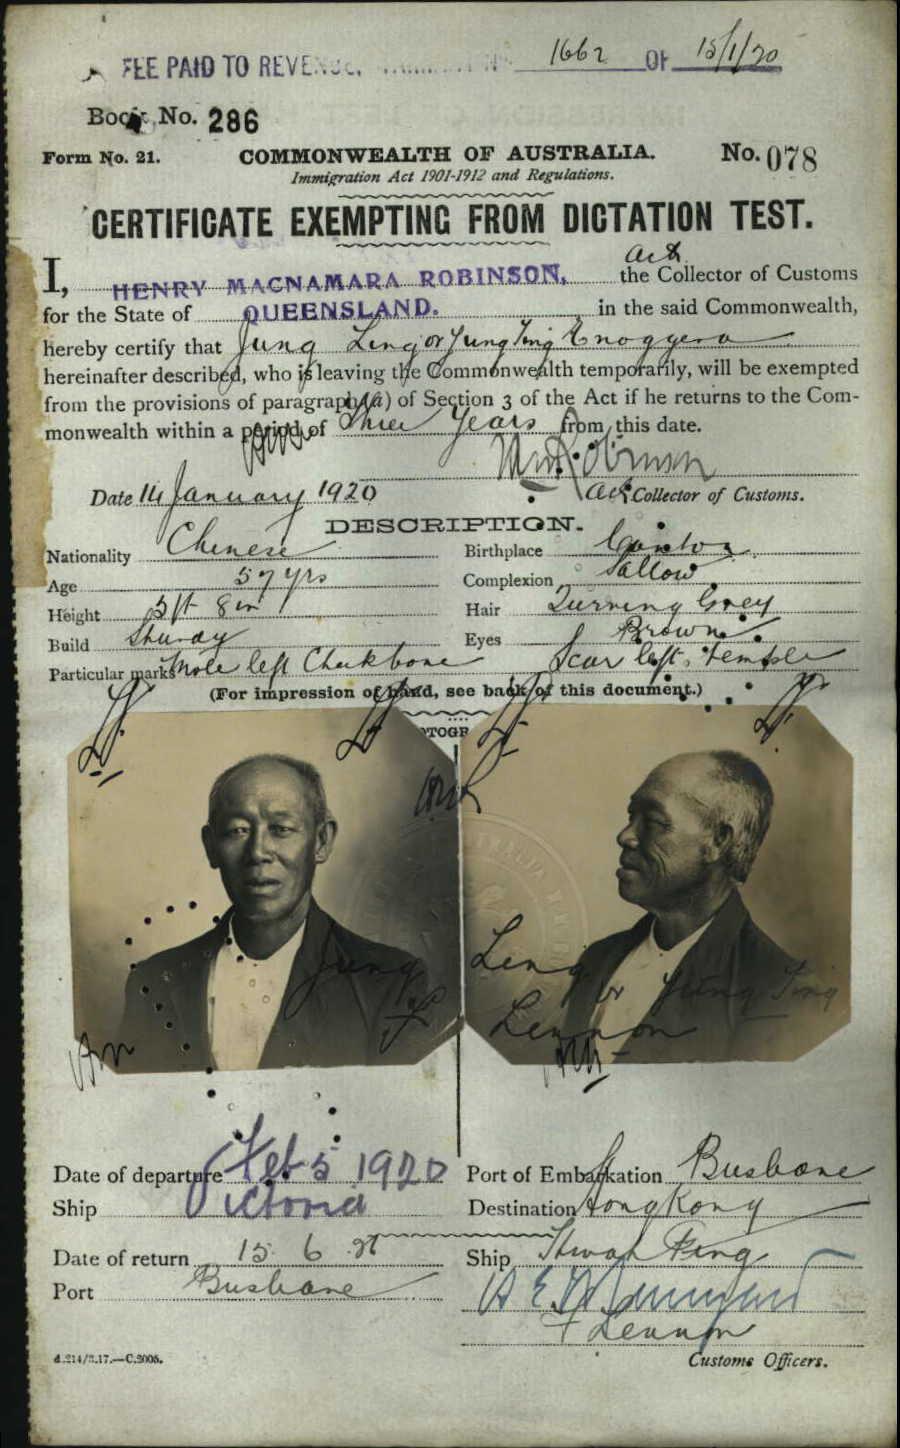 FEE PAID TO REVENUE, 1662 OF 15/1/20
Book No. 286
Form No. 21. COMMONWEALTH OF AUSTRALIA. No. 078
Immigration Act 1901-1912 and Regulations.
CERTIFICATE EXEMPTING FROM DICTATION TEST.
Act
I, HENRY MACNAMARA ROBINSON, the Collector of Customs
for the State of QUEENSLAND. in the said Commonwealth,
hereby certify that Jung Ling or Yung Ting Enoggera
hereinafter described, who is leaving the Commonwealth temporarily, will be exempted
from the provisions of paragraph (a) of Section 3 of the Act if he returns to the Com-
monwealth within a period of Three Years from this date.
Date 14 January 1920 Act Collector of Customs.
DESCRIPTION.
Nationality Chinese Birthplace Canton
Age 57 yrs Complexion Sallow
Height 5 ft 8 in Hair Turning Grey
Build Sturdy Eyes Brown
Particular marks Mole left Cheekbone Scar left temple
(For impression of hand, see back of this document.)
Jung Ling or Yung Ting
F Lennon
Date of departure Feb 5 1920 Port of Embarkation Brisbane
Ship Victoria Destination Hong Kong
Date of return 15 6 21 Ship Hwah Ping
Port Brisbane
F Lennon
d.214/3.17.—C.2005. Customs Officers.